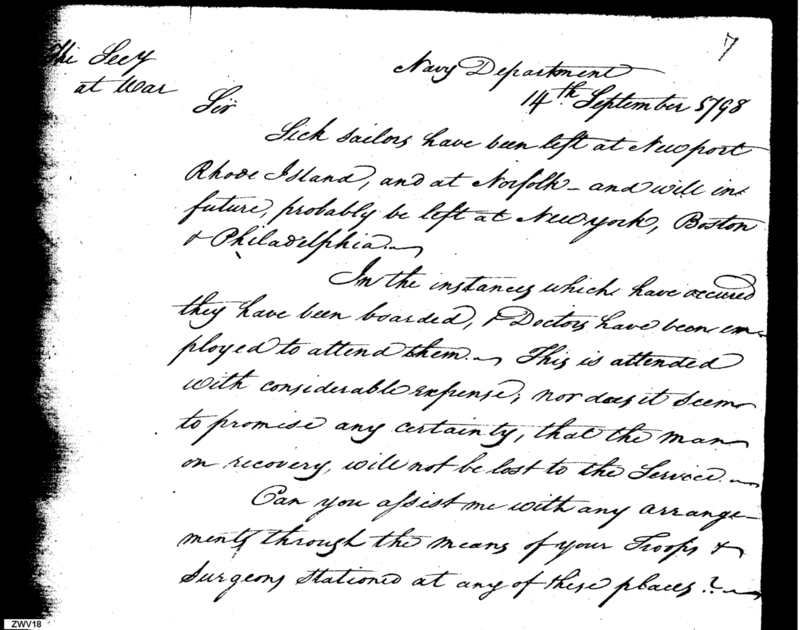 7
The Secy
at War
Navy Department
14th September 1798
Sir
Sick sailors have been left at Newport
Rhode Island, and at Norfolk - and will in
future, probably be left at New york, Boston
& Philadelphia.
In the instances which have occured
they have been boarded, & Doctors have been em-
ployed to attend them. This is attended
with considerable expense; nor does it seem
to promise any certainty, that the man
on recovery, will not be lost to the Service.
Can you assist me with any arrange-
ments through the means of your Troops &
Surgeons stationed at any of these places?
ZWV18